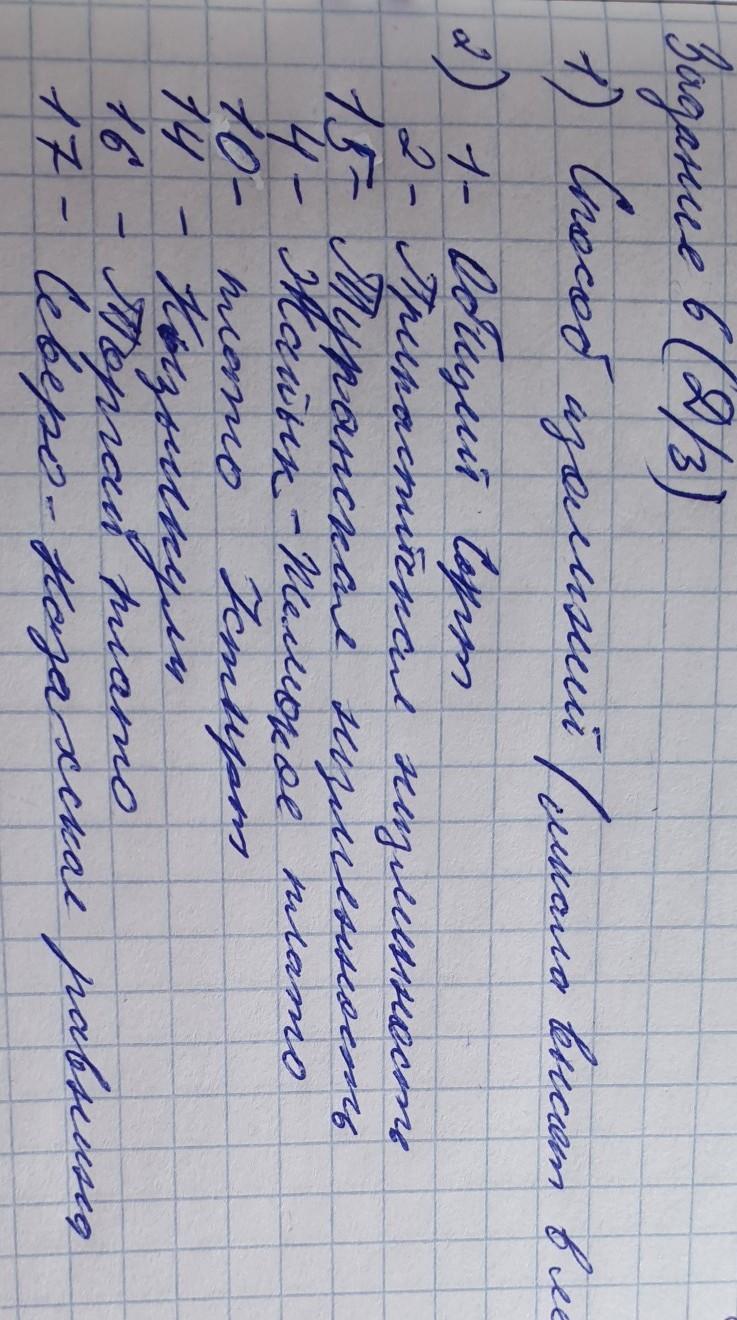 Задание 6 (Д/З)
1) Способ изолиний (шкала высот в ме
2) 1- Общий Сырт
2- Прикаспийская низменность
15- Туранская низменность
4- Жайык-Жемское плато
10- плато Устюрт
14 - Кызылкум
16 - Торгай плато
17 - Северо-Казахская равнина